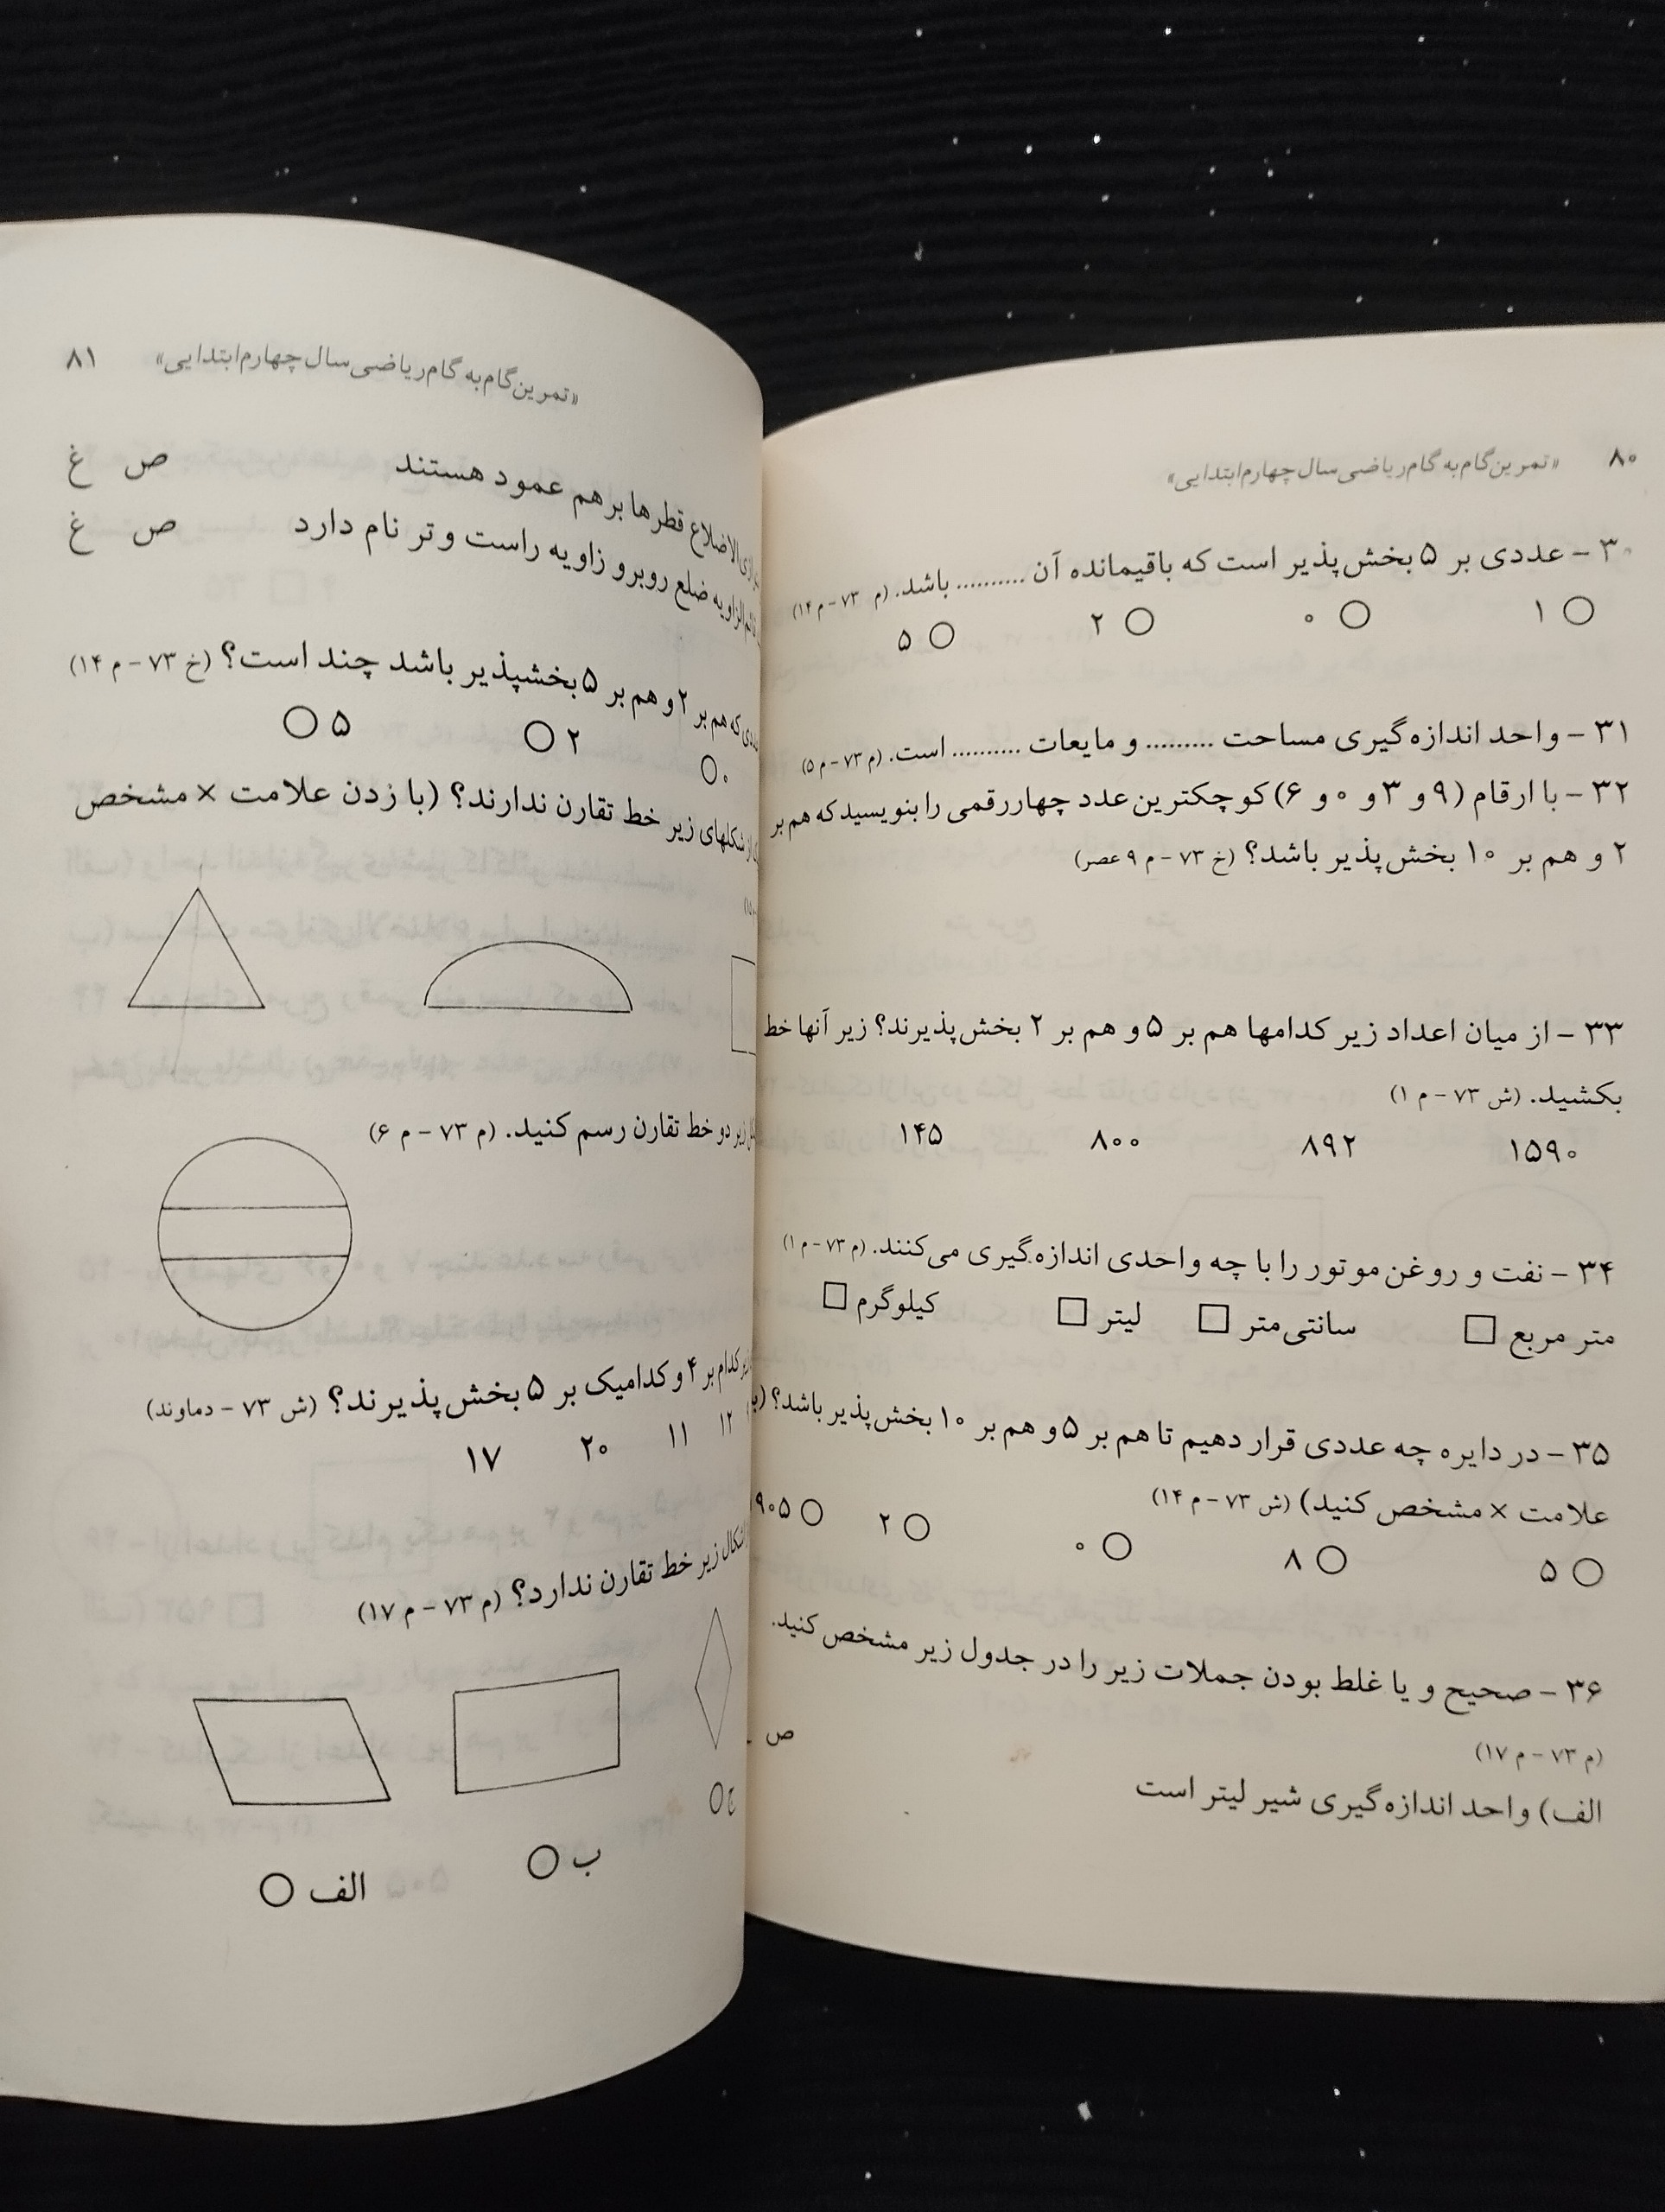 ۸۰ «تمرین گام به گام ریاضی سال چهارم ابتدایی»
۳۰ – عددی بر ۵ بخش‌پذیر است که باقیمانده آن .......... باشد. (م ۷۳ – م ۱۴)
۱ ۰ ۲ ۵
۳۱ – واحد اندازه‌گیری مساحت ......... و مایعات .......... است. (م ۷۳ – م ۵)
۳۲ – با ارقام (۹ و ۳ و ۰ و ۶) کوچکترین عدد چهار رقمی را بنویسید که هم بر
۲ و هم بر ۱۰ بخش‌پذیر باشد؟ (خ ۷۳ – م ۹ عصر)
۳۳ – از میان اعداد زیر کدامها هم بر ۵ و هم بر ۲ بخش‌پذیرند؟ زیر آنها خط
بکشید. (ش ۷۳ – م ۱)
۱۵۹۰ ۸۹۲ ۸۰۰ ۱۴۵
۳۴ – نفت و روغن موتور را با چه واحدی اندازه‌گیری می‌کنند. (م ۷۳ – م ۱)
متر مربع سانتی‌متر لیتر کیلوگرم
۳۵ – در دایره چه عددی قرار دهیم تا هم بر ۵ و هم بر ۱۰ بخش‌پذیر باشد؟
علامت × مشخص کنید) (ش ۷۳ – م ۱۴)
۵ ۸ ۰ ۲ ۹۰۵
۳۶ – صحیح و یا غلط بودن جملات زیر را در جدول زیر مشخص کنید.
(م ۷۳ – م ۱۷) ص
الف) واحد اندازه‌گیری شیر لیتر است
«تمرین گام به گام ریاضی سال چهارم ابتدایی» ۸۱
قطرها بر هم عمود هستند ص غ
ضلع روبرو زاویه راست وتر نام دارد ص غ
که هم بر ۲ و هم بر ۵ بخشپذیر باشد چند است؟ (خ ۷۳ – م ۱۴)
۰ ۲ ۵
شکلهای زیر خط تقارن ندارند؟ (با زدن علامت × مشخص
زیر دو خط تقارن رسم کنید. (م ۷۳ – م ۶)
کدام بر ۴ و کدامیک بر ۵ بخش‌پذیرند؟ (ش ۷۳ – دماوند)
۱۲ ۱۱ ۲۰ ۱۷
اشکال زیر خط تقارن ندارد؟ (م ۷۳ – م ۱۷)
ج ب الف